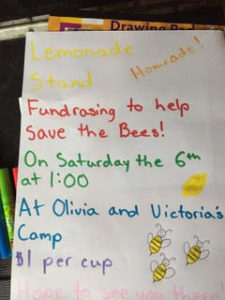 Drawing Pad
Lemonade
Homrade!
Stand
Fundrasing to help
Save the Bees!
On Saturday the 6th
at 1:00
At Olivia and Victoria's
Camp
$1 per cup
Hope to see you there!